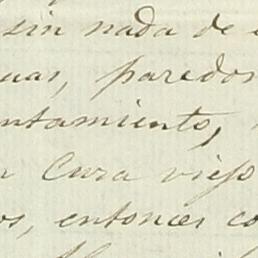 sin nada de
uas, paredon
ntamiento,
Cura viejo
os, entonces co